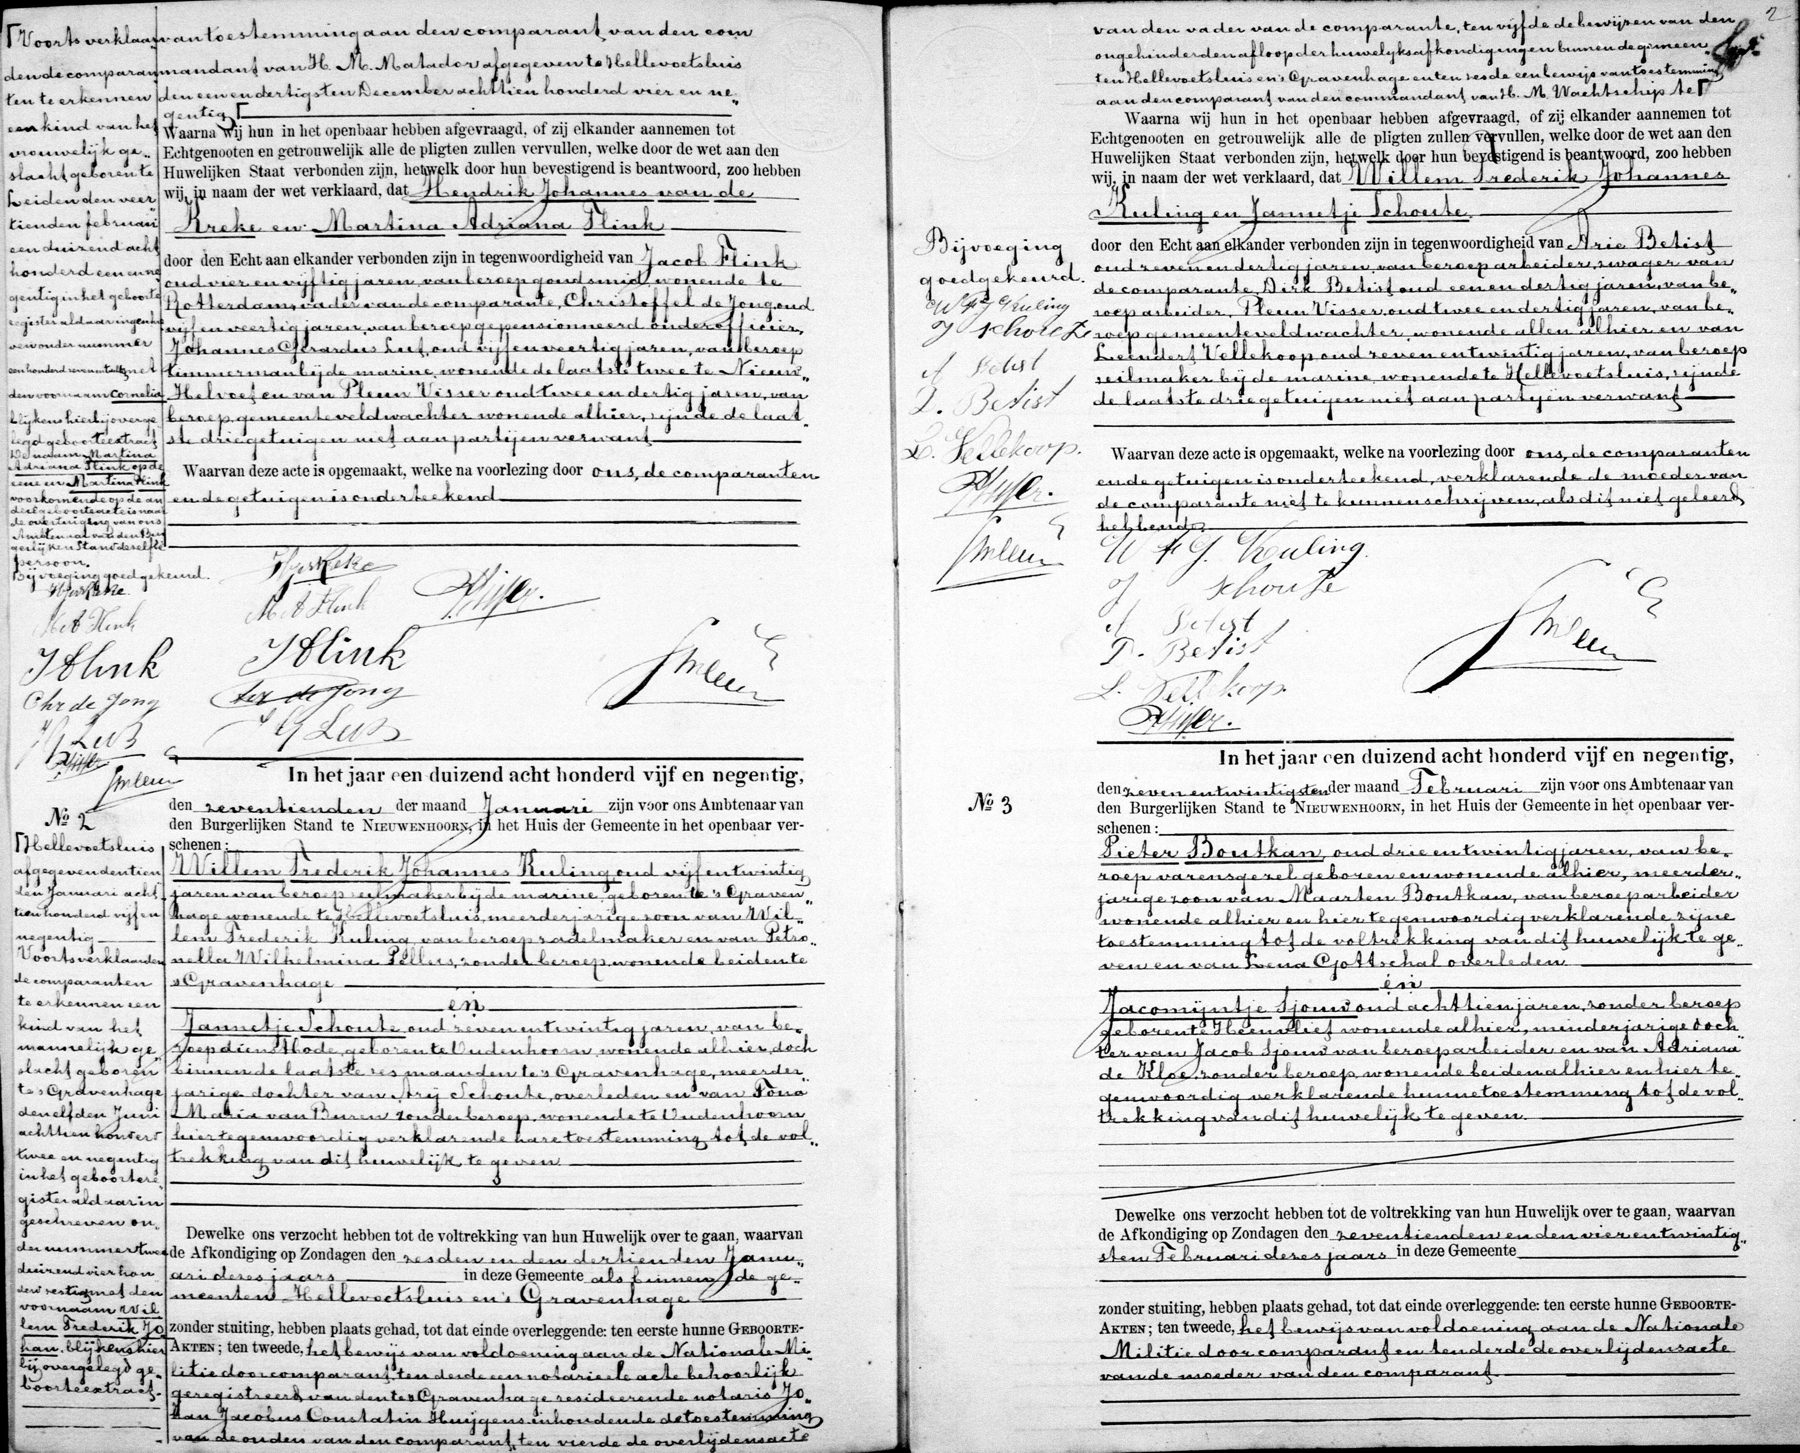 Voorts verklaar
den de comparan
ten te erkennen
een kind van het
vrouwelijk ge„
slacht geboren te
Leiden den veer„
tienden februari
een duizend acht
honderd een en ne
gentig in het geboorte
register aldaar ingeschre
ven onder nummer
een honderd met
den voornaam Cornelia
blijkens hierbij overge
legd geboorteextract
De naam Martina
Adriana Flink op de
eene en Martina Flink
voorkomende op de an
dere geboorteacte is naar
de overtuiging van ons
Ambtenaar van den Bur
gerlijken Stand dezelfde
persoon.
Bijvoeging goedgekeurd.
HJvdKreke
M A Flink
J Flink
Chr de Jong
J G Lus
P. Visser
van toestemming aan den comparant van den com
mandant van H. M. Matador afgegeven te Hellevoetsluis
den een en dertigsten December achttien honderd vier en ne„
gentig
Waarna wij hun in het openbaar hebben afgevraagd, of zij elkander aannemen tot
Echtgenooten en getrouwelijk alle de pligten zullen vervullen, welke door de wet aan den
Huwelijken Staat verbonden zijn, hetwelk door hun bevestigend is beantwoord, zoo hebben
wij, in naam der wet verklaard, dat Hendrik Johannes van de
Kreke en Martina Adriana Flink
door den Echt aan elkander verbonden zijn in tegenwoordigheid van Jacob Flink
oud vier en vijftig jaren, van beroep goudsmid, wonende te
Rotterdam, vader van de comparante, Christoffel de Jong, oud
vijf en veertig jaren, van beroep gepensionneerd onderofficier,
Johannes Gerardus Lus, oud vijf en veertig jaren, van beroep
timmerman bij de marine, wonende de laatste twee te Nieuw„
Helvoet en van Pleun Visser oud twee en dertig jaren, van
beroep gemeenteveldwachter wonende alhier, zijnde de laat
ste drie getuigen niet aan partijen verwant
Waarvan deze acte is opgemaakt, welke na voorlezing door ons, de comparanten
en de getuigen is onderteekend
HJvdKreke
M A Flink
P. Visser.
J Flink
Chr de Jong
J G Lus
In het jaar een duizend acht honderd vijf en negentig,
den zeventienden der maand Januari zijn voor ons Ambtenaar van
den Burgerlijken Stand te NIEUWENHOORN, in het Huis der Gemeente in het openbaar ver-
schenen:
No 2
Hellevoetsluis
afgegeven den tien
den Januari acht„
tien honderd vijf en
negentig
Voorts verklaarden
de comparanten
te erkennen een
kind van het
mannelijk ge„
slacht geboren
te 's Gravenhage
den elfden Juni
achttien honderd
twee en negentig
in het geboortere„
gister aldaar in
geschreven on„
der nummer twee
duizend vier hon„
derd zestig met den
voornaam Wil
lem Frederik Jo
han blijkens hier
bij overgelegd ge„
boorteextract
Willem Frederik Johannes Kuling, oud vijf en twintig
jaren van beroep zeilmaker bij de marine, geboren te 's Graven„
hage wonende te Hellevoetsluis, meerderjarige zoon van Wil„
lem Frederik Kuling, van beroep zadelmaker en van Petro„
nella Wilhelmina Pellers, zonder beroep, wonende beiden te
s Gravenhage
en
Jannetje Schoute, oud zeven en twintig jaren, van be„
roep dienstbode, geboren te Oudenhoorn, wonende alhier, doch
binnen de laatste zes maanden te 's Gravenhage, meerder
jarige dochter van Arij Schoute, overleden en van Tona
Maria van Buren zonder beroep, wonende te Oudenhoorn
hier tegenwoordig verklarende hare toestemming tot de vol„
trekking van dit huwelijk te geven
Dewelke ons verzocht hebben tot de voltrekking van hun Huwelijk over te gaan, waarvan
de Afkondiging op Zondagen den zesden en den dertienden Janu„
ari dezes jaars in deze Gemeente als binnen de ge„
meenten Hellevoetsluis en 's Gravenhage
zonder stuiting, hebben plaats gehad, tot dat einde overleggende: ten eerste hunne GEBOORTE-
AKTEN; ten tweede, het bewijs van voldoening aan de Nationale Mi„
litie door comparant ten derde een notarieele acte behoorlijk
geregistreerd van den te 's Gravenhage resideerende notaris Jo„
han Jacobus Constatin Huijgens inhoudende de toestemming
van de ouders van den comparant, ten vierde de overlijdensacte
2
van den vader van de comparante, ten vijfde de bewijzen van den
ongehinderden afloop der huwelijksafkondigingen binnen de gemeen„
ten Hellevoetsluis en 's Gravenhage en ten zesde een bewijs van toestemming
aan den comparant van den commandant van H. M. Wachtschip te
Waarna wij hun in het openbaar hebben afgevraagd, of zij elkander aannemen tot
Echtgenooten en getrouwelijk alle de pligten zullen vervullen, welke door de wet aan den
Huwelijken Staat verbonden zijn, hetwelk door hun bevestigend is beantwoord, zoo hebben
wij, in naam der wet verklaard, dat Willem Frederik Johannes
Kuling en Jannetje Schoute
door den Echt aan elkander verbonden zijn in tegenwoordigheid van Arie Betist
oud zeven en dertig jaren, van beroep arbeider, zwager van
de comparante, Dirk Betist oud een en dertig jaren, van be„
roep arbeider, Pleun Visser, oud twee en dertig jaren, van be„
roep gemeenteveldwachter, wonende allen alhier en van
Leendert Vellekoop, oud zeven en twintig jaren, van beroep
zeilmaker bij de marine, wonende te Hellevoetsluis, zijnde
de laatste drie getuigen niet aan partijen verwant
Waarvan deze acte is opgemaakt, welke na voorlezing door ons, de comparanten
en de getuigen is onderteekend, verklarende de moeder van
de comparante niet te kunnen schrijven, als dit niet geleerd
hebbende
Bijvoeging
goedgekeurd.
W F J Kuling
J Schoute
A Betist
D. Betist
L. Vellekoop.
P Visser.
W F J Kuling.
J Schoute
A Betist
D. Betist
L. Vellekoop.
P Visser.
In het jaar een duizend acht honderd vijf en negentig,
No 3
den zeven en twintigsten der maand Februari zijn voor ons Ambtenaar van
den Burgerlijken Stand te NIEUWENHOORN, in het Huis der Gemeente in het openbaar ver-
schenen:
Pieter Boutkan, oud drie en twintig jaren, van be„
roep varensgezel geboren en wonende alhier, meerder„
jarige zoon van Maarten Boutkan, van beroep arbeider
wonende alhier en hier tegenwoordig verklarende zijne
toestemming tot de voltrekking van dit huwelijk te ge„
ven en van Lena Gottschal overleden
en
Jacomijntje Sjouw oud achttien jaren, zonder beroep
geboren te Heenvliet wonende alhier, minderjarige doch
ter van Jacob Sjouw van beroep arbeider en van Adriana
de Kloe, zonder beroep, wonende beiden alhier en hier te„
genwoordig verklarende hunne toestemming tot de vol„
trekking van dit huwelijk te geven.
Dewelke ons verzocht hebben tot de voltrekking van hun Huwelijk over te gaan, waarvan
de Afkondiging op Zondagen den zeventienden en den vier en twintig„
sten Februari dezes jaars in deze Gemeente
zonder stuiting, hebben plaats gehad, tot dat einde overleggende: ten eerste hunne GEBOORTE-
AKTEN; ten tweede, het bewijs van voldoening aan de Nationale
Militie door comparant en ten derde de overlijdensacte
van de moeder van den comparant.